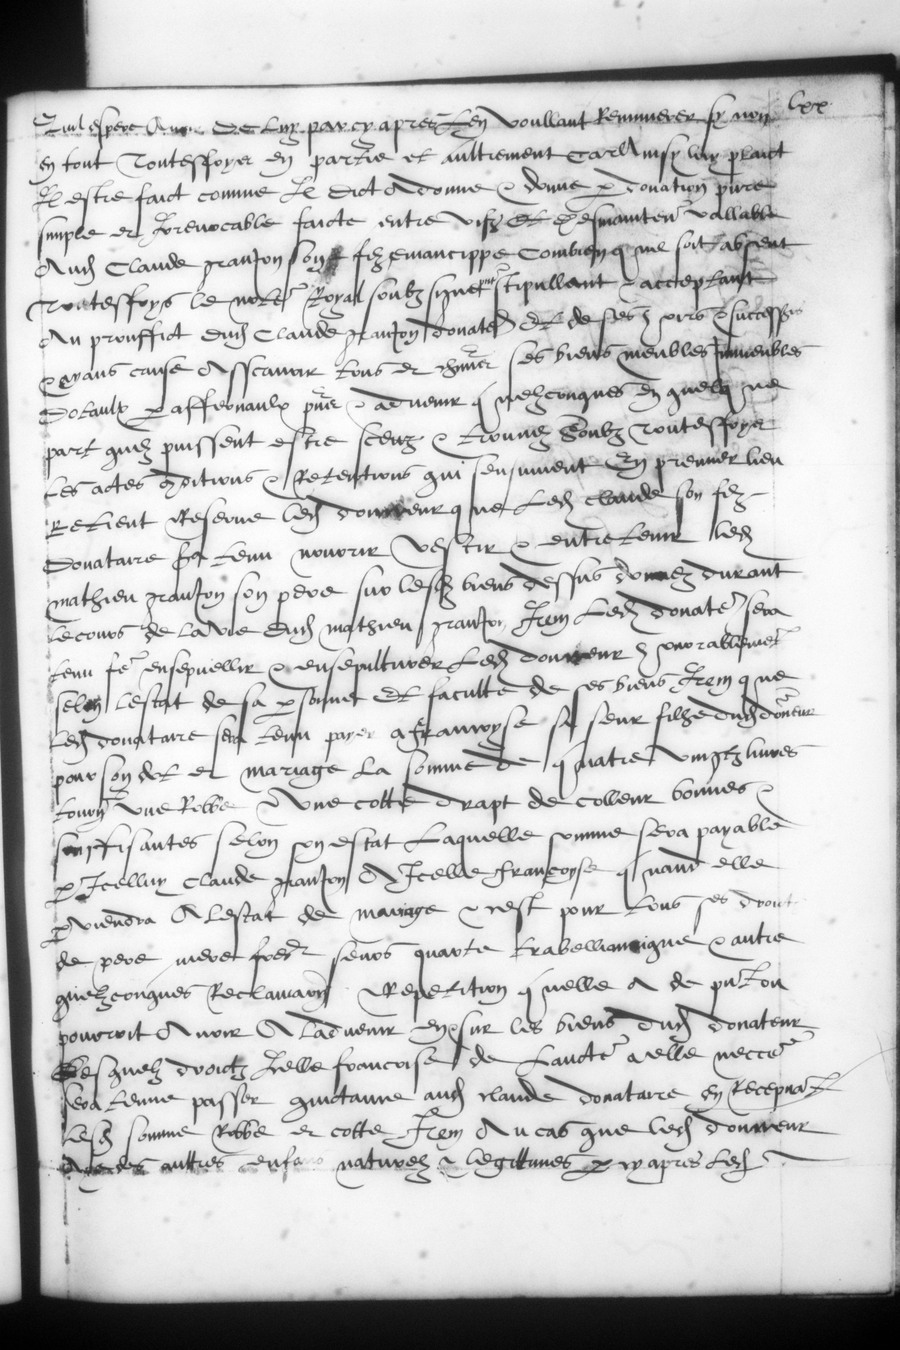 lxx
quil espere avoir de luy par cy apres Len voullant Remunerer sy non
en tout Touteffoyes en partie et aultrement Car Ainsy luy plaict
Il estre faict comme Il dict A donne & donne p donation pure
simple et Irrevocable faicte entre vifz Et desmainten vallable
Aud Claude granjon son filz emancippe Combien quil soit absent
Touteffoys le not Royal soubz signe stipullant & acceptant
Au prouffict dud Claude granjon donate Et de ses hoirs & successrs
& ayans cause Asscavoir tous et chuns ses biens meubles Immeubles
dotaulx paraffernaulx pns & advenir quelzconques En quelq ne
part quilz puissent estre sceuz & trouvez Soubz Touteffoyes
les actes & Retentions qui sensuivent En premier lieu
Retient Reserve led donneur que Led Claude son filz
donataire tenu nourrir Vestir & entretenir led
mathieu granjon son pere sur lesd biens dessus donnez durant
le cours de la vie dud mathieu granjon Item Led donate sera
tenu fe ensepvellir & ensepulturer Led donneur honorablemet
selon Lestat de sa psonne Et faculte de ses biens Item que
Led donataire sera tenu payer a francoyse sa seur filhe dud donneur
pour son dot et mariage La somme de quatre vingtz livres
tourn Une Robbe & Une cotte drapt de colleur bonnes &
souffisantes selon son estat Laquelle somme sera payable
p Icelluy Claude granjon A Icelle francoyse quand elle
pviendra A Lestat de mariage & cest pour tous ses droictz
de pere mere freres seurs quarte trabellianique & autre
quelzconques Reclamaon Repetition quelle A de pnt ou
pourroit Avoir A Ladvenir en & sur les biens dud donateur
Desquelz droictz Icelle francoise de Laucte a elle necce
sera tenue passer quictance aud claude donataire en Recepvant
Lesd somme Robbe et cotte Item Au cas que led donneur
Ayt des aultres enfans naturelz & legittimes p cy apres Led